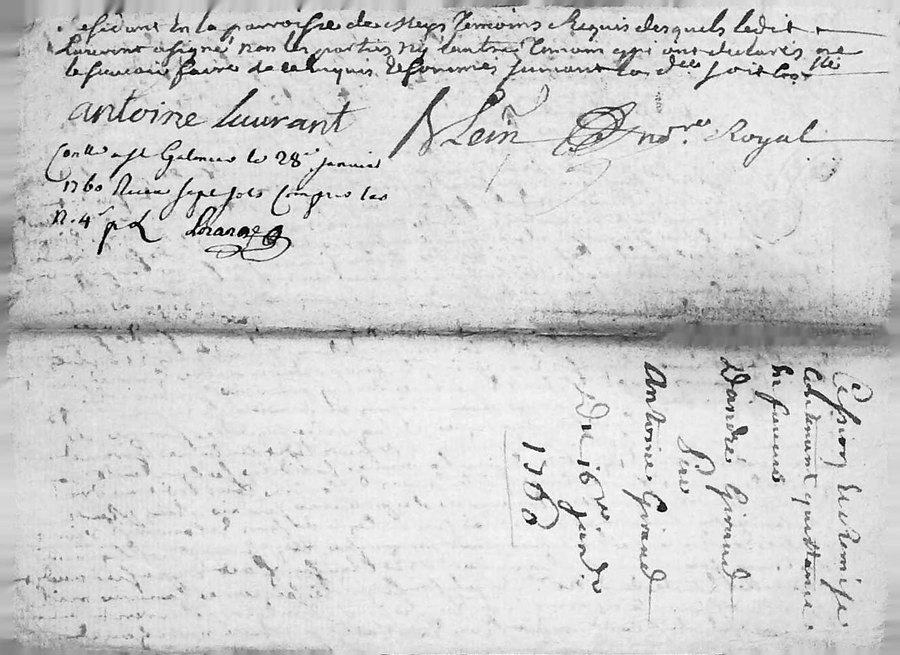 residant en la parroisse de Meys temoins Requis desquels ledit
Laurent a signé non les parties ny l'autre temoin qui ont declarés ne
le scavoir faire de ce enquis et sommés suivant l'ord.ce soit
antoine laurant
Klein no.re Royal
Con.lle a s.t Galmier le 28.e janvier
1760 Receu sept sols compris les
n. 4 s. p. L
Cession et Remise
contenant quittance
en faveur
Dandré Giraud
Par
Antoine Giraud
Du 16 janv.
1760